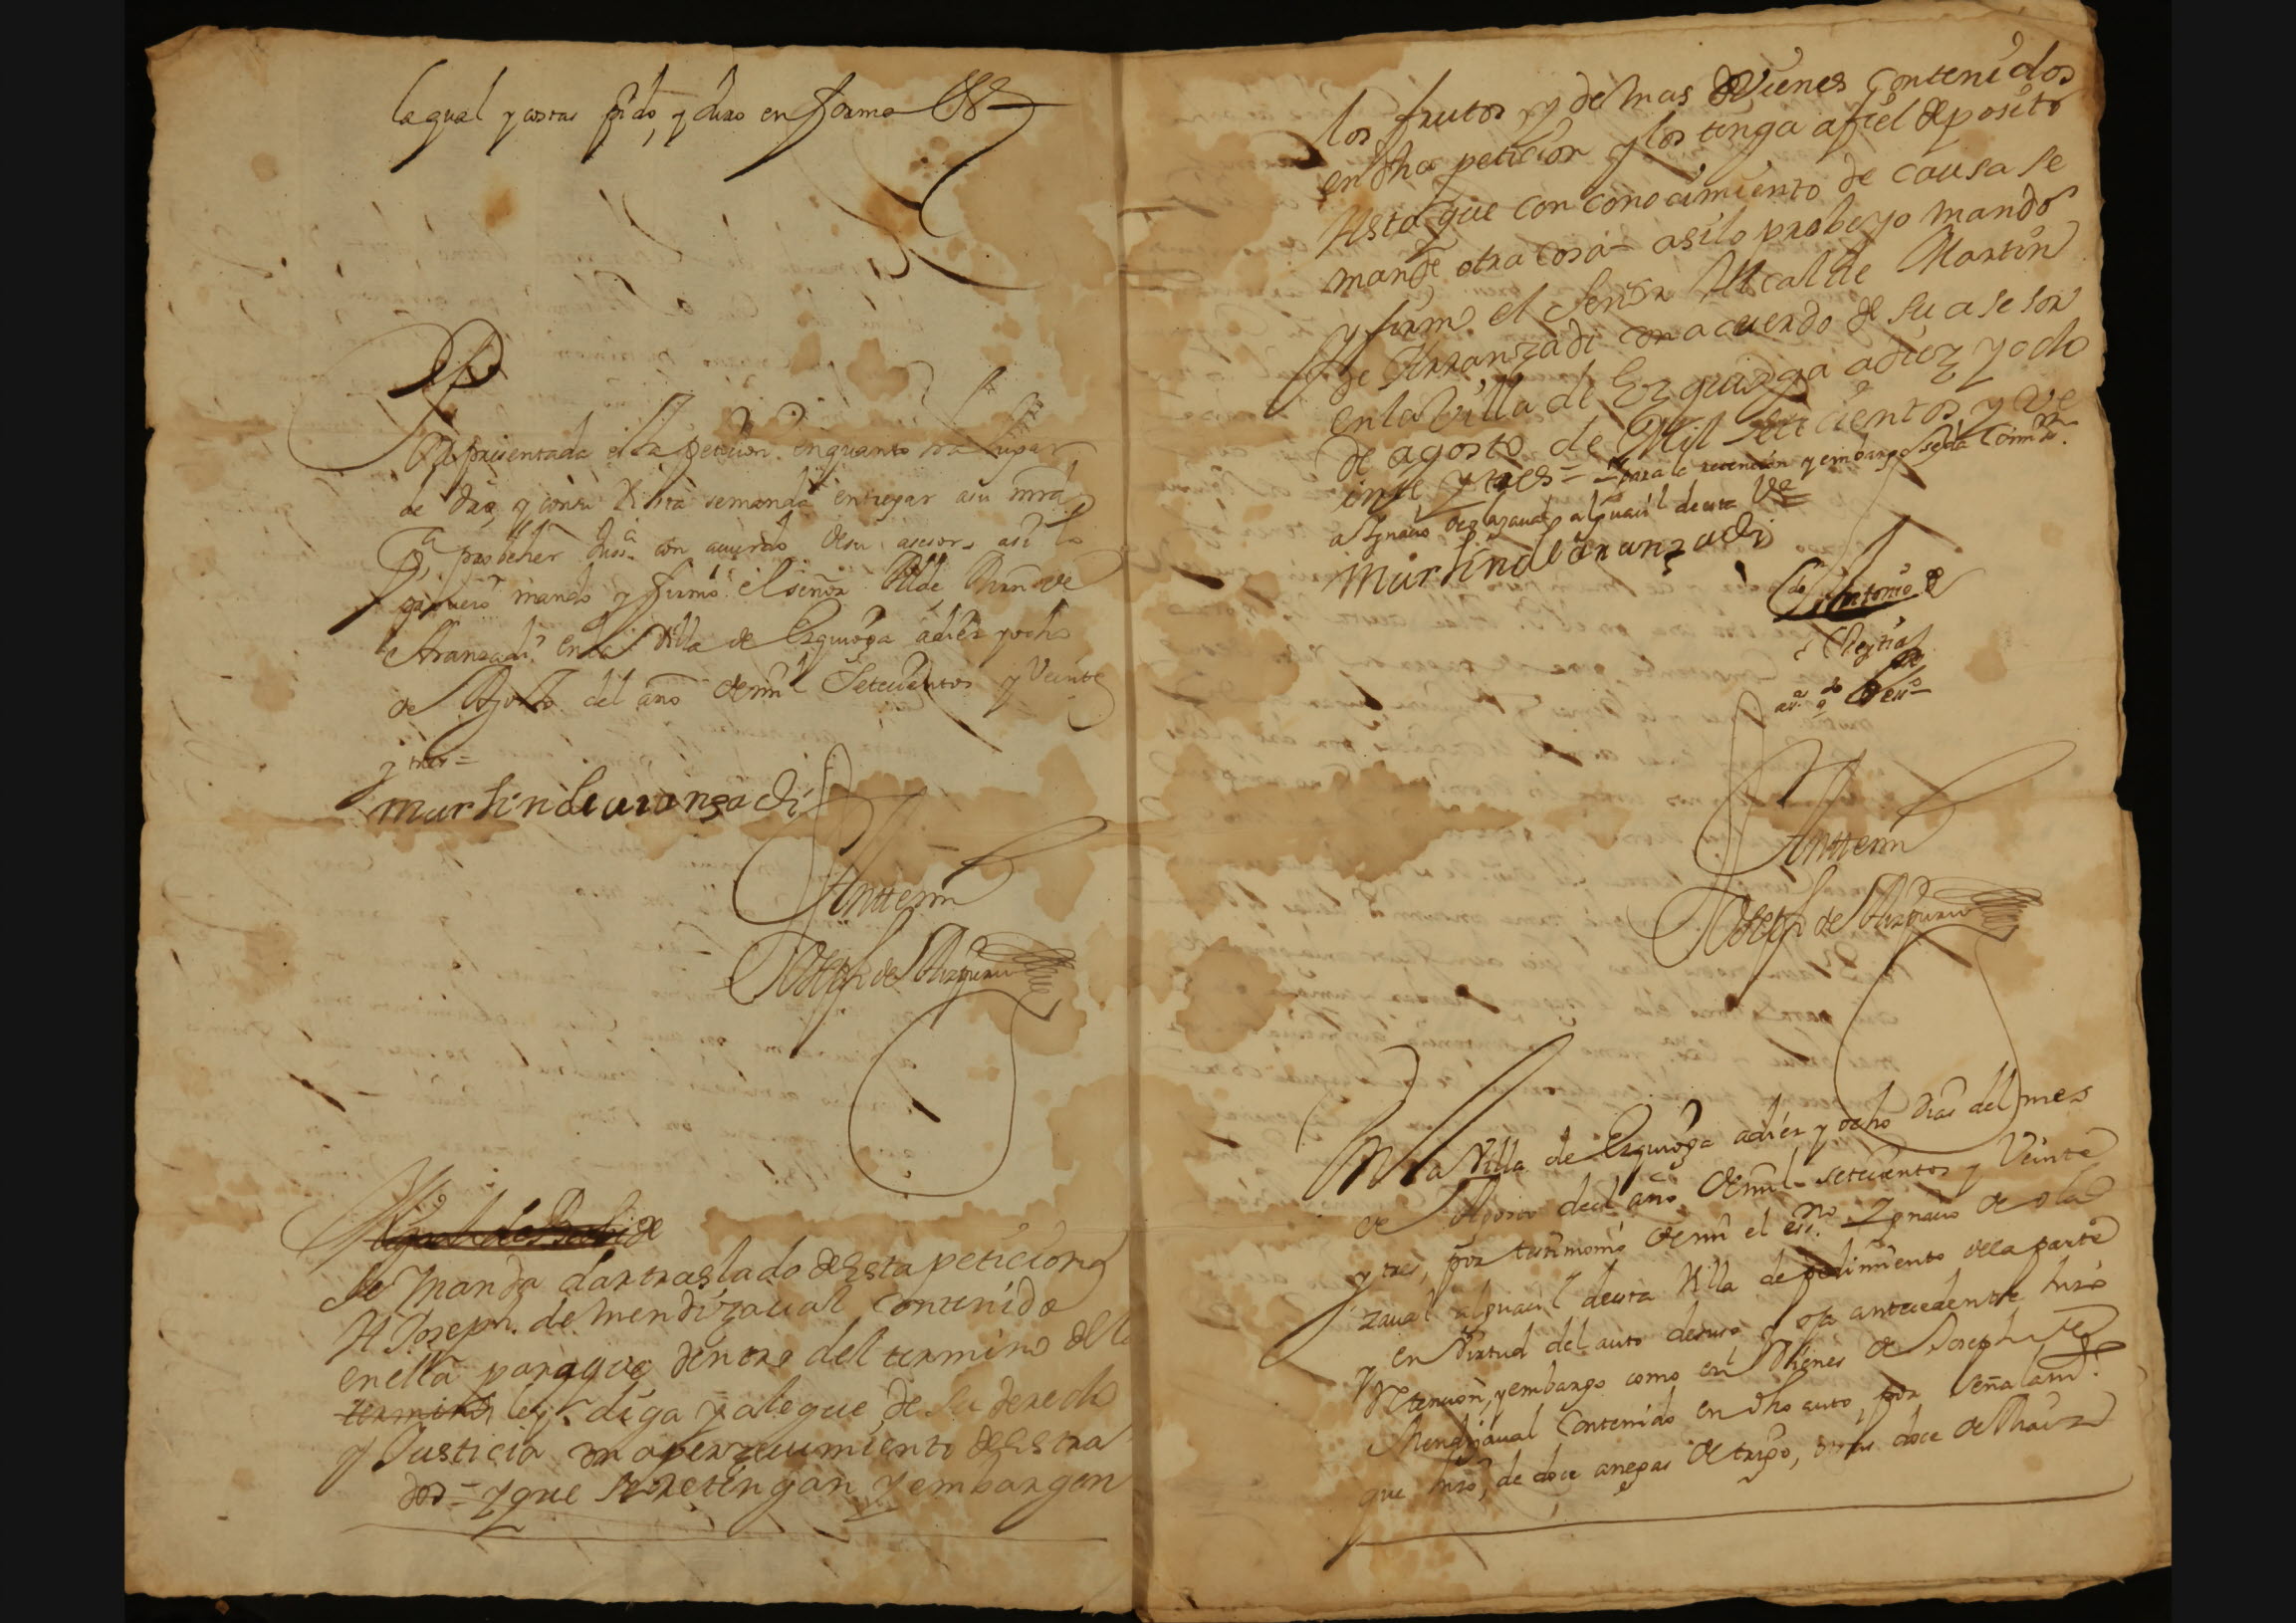 la qual y costas pido, y Juro en forma &ª
Por presentada esta peticion en quanto ha lugar
de dro, y con su vista se manda entregar a su mrd
pª probeher Jusª con acuerdo de su asesor, asi lo
mando y firmo el señor Allde Mrn de
Aranzadi en la Villa de Ezquioga a diez y ocho
de Agosto del año de mil Setecientos y Veinte
y tres =
Martin de aranzadi
Ante mi
Joseph de Aizpuru
Se Manda dar traslado de Esta peticion
A Joseph de mendizaual Contenido
en ella para que dentro del termino de la
termino ley diga y alegue de su derecho
y Justicia con aperzeuimiento de Estra
dos = y que se retengan y embargen
los frutos y demas Vienes Contenidos
en dha peticion y los tenga a fiel deposito
Asta que con conocimiento de causa se
mande otra cosa = asi lo probeyo mando
y firmo el Senor Alcalde Martin
de Arranzadi con acuerdo de su asesor
en la Villa de Ezquioga a diez y ocho
de agosto de Mil setecientos y Ve
inte y tres = para la retencion y embargo se da Comon
a Ygnacio de olazaual alguacil de esta Vª
Martin de aranzadi
Ldo Antonio de
Ante mi
Joseph de Aizpuru
En la Villa de Ezquioga a diez y ocho dias del mes
de Agosto del año de mil setecientos y Veinte
y tres, por testimonio de mi el essno Ygnacio de ola
zaual alguacil de esta Villa de pedimiento de la parte
y en Virtud del auto de suso y oja antecedente hizo
retencion, y embargo como en Vienes de Joseph de
Mendizaual Contenido en dho auto, por señalamto
que hizo, de doce anegas de trigo, otras doce de Maiz